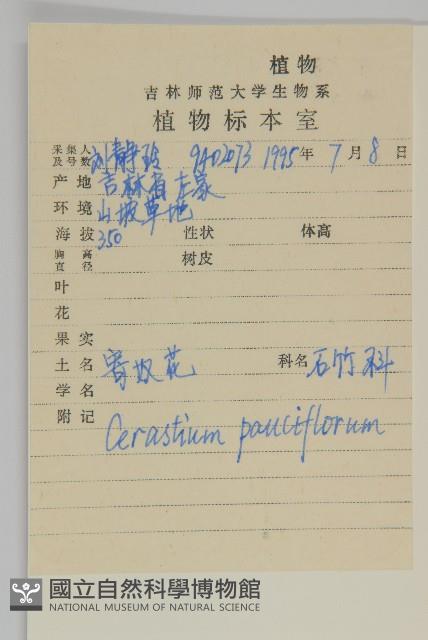 植物
吉林师范大学生物系
植物标本室
采集人及号数 刘静玻 9402073 1995年7月8日
产地 吉林省左家
环境 山坡草地
海拔 350 性状 体高
胸高直径 树皮
叶
花
果实
土名 寄奴花 科名 石竹科
学名
附记 Cerastium pauciflorum
國立自然科學博物館
NATIONAL MUSEUM OF NATURAL SCIENCE